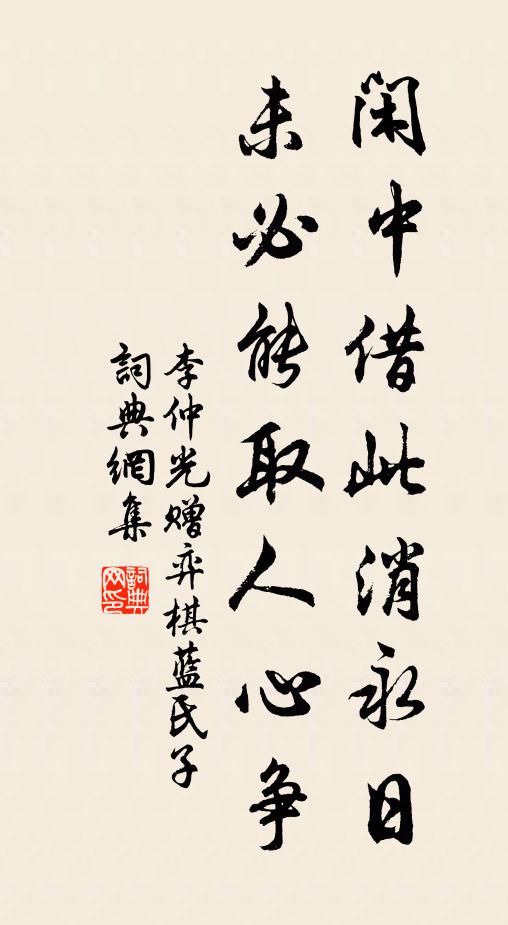 閑中借此消永日
未必能取人心争
李仲光赠弈棋藍氏子
詞典網集
詞典
网印